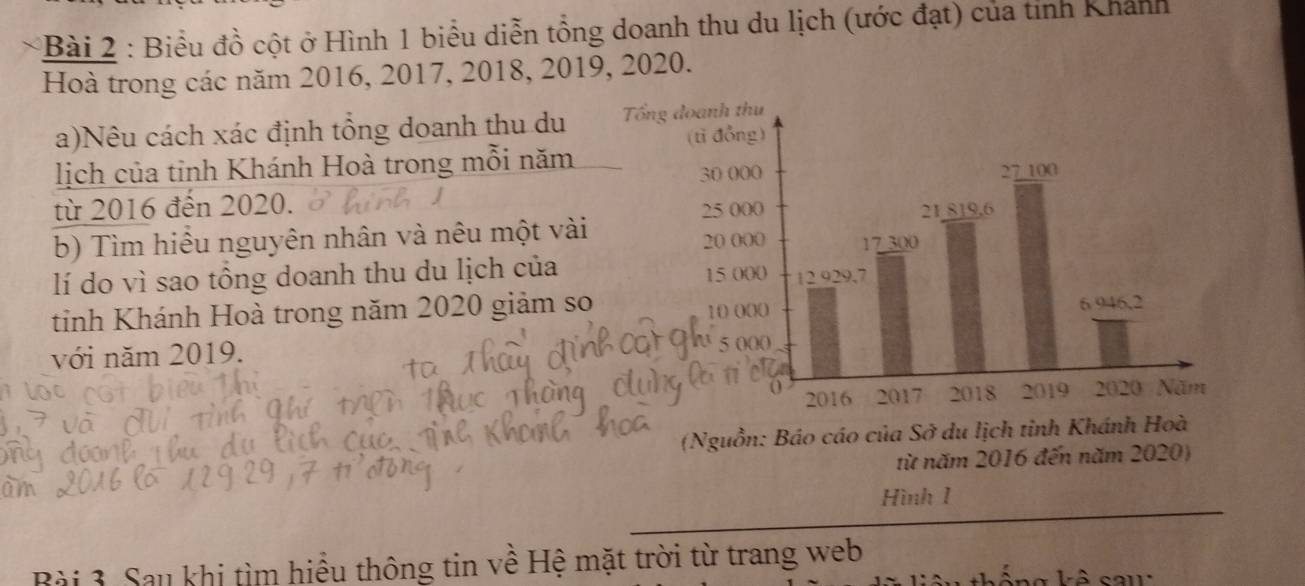 Bài 2 : Biểu đồ cột ở Hình 1 biểu diễn tổng doanh thu du lịch (ước đạt) của tỉnh Khánh
Hoà trong các năm 2016, 2017, 2018, 2019, 2020.
a)Nêu cách xác định tổng doanh thu du
lịch của tỉnh Khánh Hoà trong mỗi năm
từ 2016 đến 2020. ở hình 1
b) Tìm hiểu nguyên nhân và nêu một vài
lí do vì sao tổng doanh thu du lịch của
tỉnh Khánh Hoà trong năm 2020 giảm so
với năm 2019.
Tổng doanh thu
(tỉ đồng)
30 000
25 000
20 000
15 000
10 000
5 000
0
12 929,7
17 300
21 819,6
27 100
6 946,2
2016 2017 2018 2019 2020 Năm
ta thấy đỉnh cột ghi
cột biểu thị
7 và đơn vị tính ghi trên trục thẳng đứng là tỉ đồng
doanh thu du lịch của tỉnh Khánh hoà
2016 là 12929,7 tỉ đồng
(Nguồn: Báo cáo của Sở du lịch tỉnh Khánh Hoà
từ năm 2016 đến năm 2020)
Hình 1
Bài 3. Sau khi tìm hiểu thông tin về Hệ mặt trời từ trang web
thống kê sau: